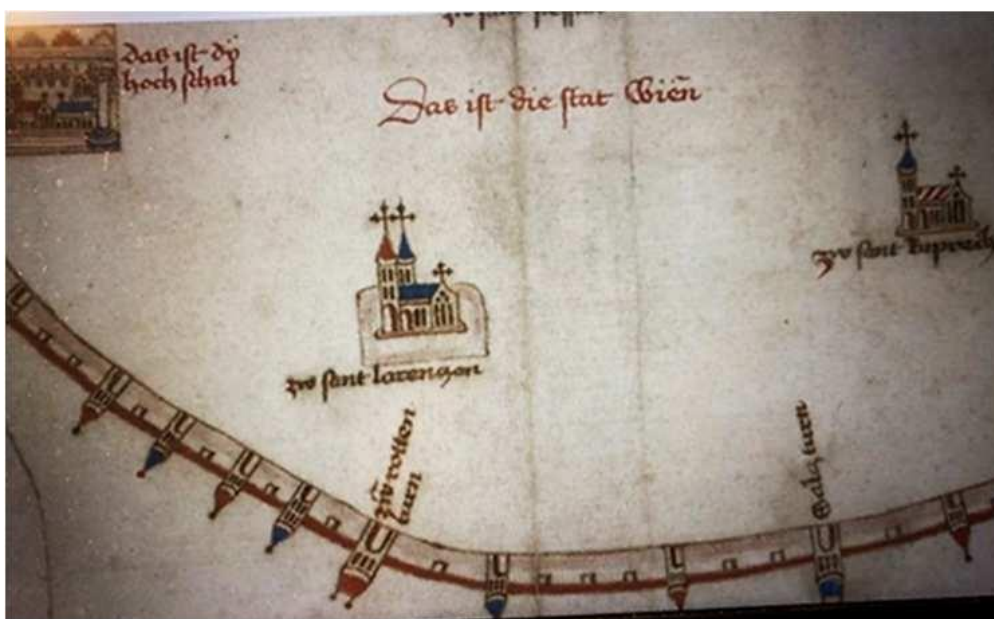 das ist dÿ
hoch schal
Das ist die stat Wien̄
zw sant
zw sant lorenczen
zw sant ruprecht
zw rotten
turn
Salczturn